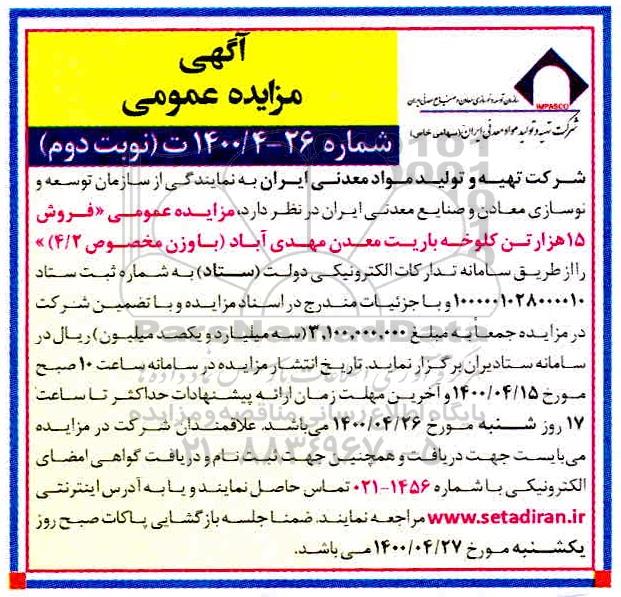 آگهی
مزایده عمومی
شماره ۲۶-۱۴۰۰/۴ ت (نوبت دوم)
IMPASCO
سازمان توسعه و نوسازی معادن و صنایع معدنی ایران
شرکت تهیه و تولید مواد معدنی ایران (سهامی خاص)
شرکت تهیه و تولید مواد معدنی ایران به نمایندگی از سازمان توسعه و
نوسازی معادن و صنایع معدنی ایران در نظر دارد، مزایده عمومی «فروش
۱۵هزار تن کلوخه باریت معدن مهدی آباد (با وزن مخصوص ۴/۲) »
را از طریق سامانه تدارکات الکترونیکی دولت (ستاد) به شماره ثبت ستاد
۱۰۰۰۰۰۱۰۲۸۰۰۰۰۱۰ و با جزئیات مندرج در اسناد مزایده و با تضمین شرکت
در مزایده جمعاً به مبلغ ۳,۱۰۰,۰۰۰,۰۰۰ (سه میلیارد و یکصد میلیون) ریال در
سامانه ستادیران برگزار نماید. تاریخ انتشار مزایده در سامانه ساعت ۱۰ صبح
مورخ ۱۴۰۰/۰۴/۱۵ و آخرین مهلت زمان ارائه پیشنهادات حداکثر تا ساعت
۱۷ روز شنبه مورخ ۱۴۰۰/۰۴/۲۶ می‌باشد. علاقمندان شرکت در مزایده
می‌بایست جهت دریافت و همچنین جهت ثبت نام و دریافت گواهی امضای
الکترونیکی با شماره ۱۴۵۶-۰۲۱ تماس حاصل نمایند و یا به آدرس اینترنتی
www.setadiran.ir مراجعه نمایند. ضمنا جلسه بازگشایی پاکات صبح روز
یکشنبه مورخ ۱۴۰۰/۰۴/۲۷ می باشد.
ParsNamadData
پایگاه اطلاع رسانی مناقصه و مزایده
۰۲۱-۸۸۳۴۹۶۷۰-۵